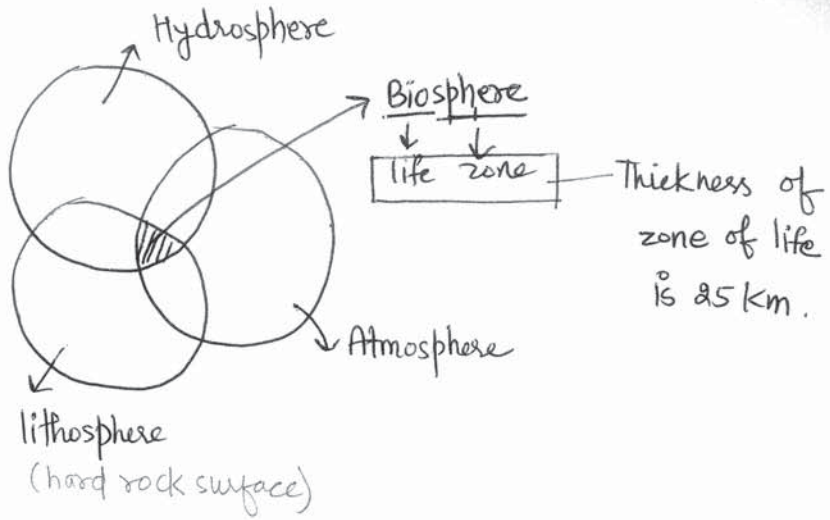 Hydrosphere
Biosphere
life zone
Thickness of
zone of life
is 25 km.
Atmosphere
lithosphere
(hard rock surface)